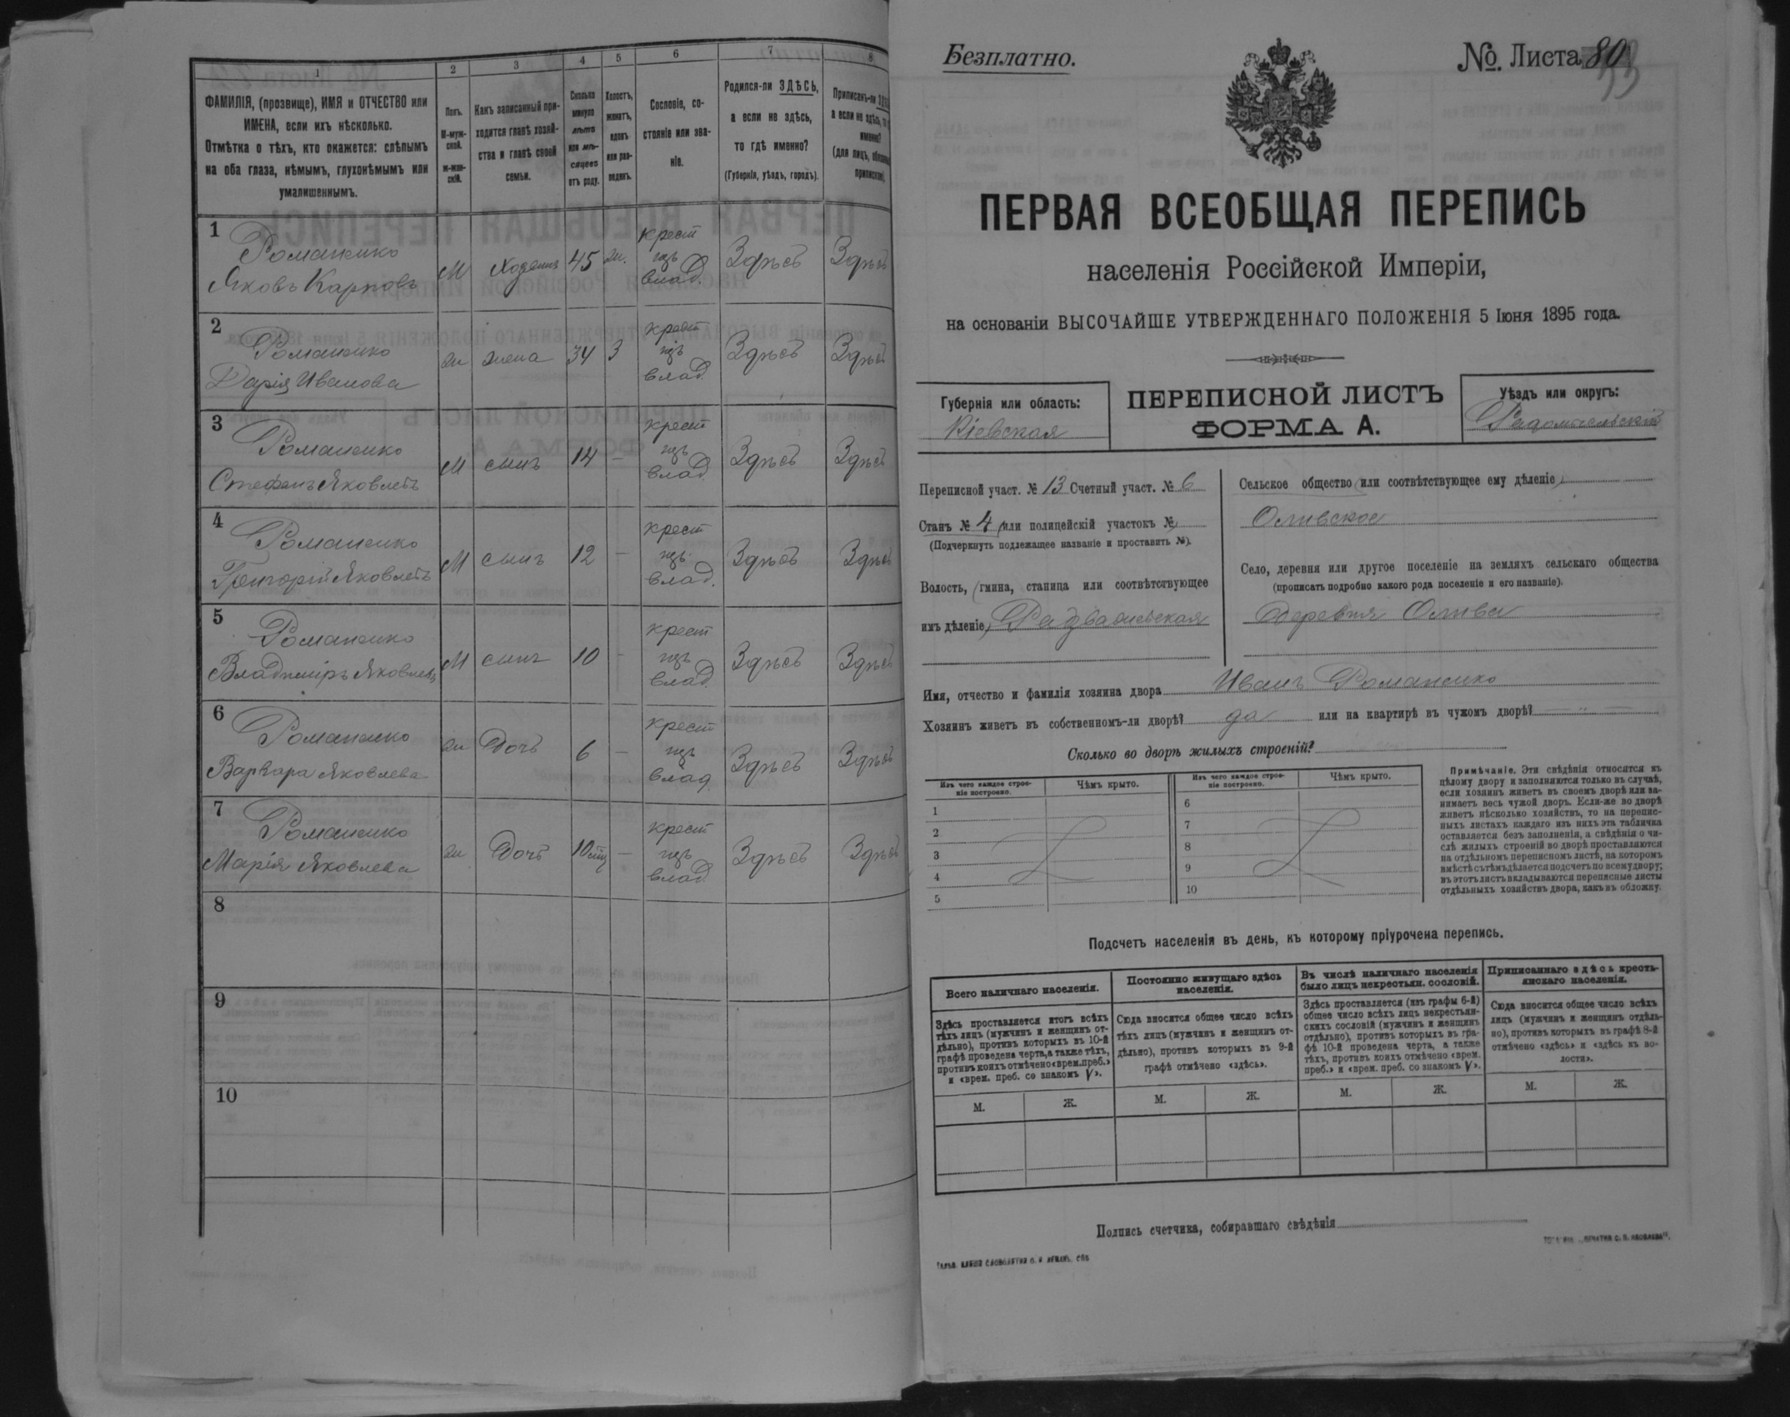 1
2
3
4
5
6
7
8
ФАМИЛІЯ, (прозвище), ИМЯ и ОТЧЕСТВО или
ИМЕНА, если ихъ нѣсколько.
Отмѣтка о тѣхъ, кто окажется: слѣпымъ
на оба глаза, нѣмымъ, глухонѣмымъ или
умалишеннымъ.
Полъ.
М-муж-
ской.
Ж-жен-
скій.
Какъ записанный при-
ходится главѣ хозяй-
ства и главѣ своей
семьи.
Сколько
минуло
лѣтъ
или мѣ-
сяцевъ
отъ роду.
Холостъ,
женатъ,
вдовъ
или раз-
веденъ.
Сословіе, со-
стояніе или зва-
ніе.
Родился-ли ЗДѢСЬ,
а если не здѣсь,
то гдѣ именно?
(Губернія, уѣздъ, городъ).
Приписанъ-ли
а если не здѣсь,
именно?
(для лицъ,
1
Романенко
Яковъ Карповъ
М Хозяинъ 45 ж. крест изъ влад. Здѣсь Здѣсь
2
Романенко
Дарія Иванова
ж жена 34 З крест изъ влад. Здѣсь Здѣсь
3
Романенко
Стефанъ Яковлевъ
М сынъ 14 — крест изъ влад. Здѣсь Здѣсь
4
Романенко
Григорій Яковлевъ
М сынъ 12 — крест изъ влад. Здѣсь Здѣсь
5
Романенко
Владиміръ Яковлевъ
М сынъ 10 — крест изъ влад. Здѣсь Здѣсь
6
Романенко
Варвара Яковлева
ж Дочь 6 — крест изъ влад. Здѣсь Здѣсь
7
Романенко
Марія Яковлева
ж Дочь 10 — крест изъ влад. Здѣсь Здѣсь
8
9
10
Безплатно.
№ Листа 80
ПЕРВАЯ ВСЕОБЩАЯ ПЕРЕПИСЬ
населенія Россійской Имперіи,
на основаніи ВЫСОЧАЙШЕ УТВЕРЖДЕННАГО ПОЛОЖЕНІЯ 5 Іюня 1895 года.
Губернія или область:
Кіевская
ПЕРЕПИСНОЙ ЛИСТЪ
ФОРМА А.
Уѣздъ или округъ:
Радомысльскій
Переписной участ. № 13 Счетный участ. № 6
Станъ № 4 или полицейскій участокъ №
(Подчеркнуть подлежащее названіе и проставить №).
Волость, (гмина, станица или соотвѣтствующее
имъ дѣленіе)
Сельское общество (или соотвѣтствующее ему дѣленіе)
Оливское
Село, деревня или другое поселеніе на земляхъ сельскаго общества
(прописать подробно какого рода поселеніе и его названіе).
Деревня Олива
Имя, отчество и фамилія хозяина двора Иванъ Романенко
Хозяинъ живетъ въ собственномъ-ли дворѣ? да или на квартирѣ въ чужомъ дворѣ? —
Сколько во дворѣ жилыхъ строеній?
Изъ чего каждое строе-
ніе построено.
Чѣмъ крыто.
Изъ чего каждое строе-
ніе построено.
Чѣмъ крыто.
1
2
3
4
5
6
7
8
9
10
Примѣчаніе. Эти свѣдѣнія относятся къ
цѣлому двору и заполняются только въ случаѣ,
если хозяинъ живетъ въ своемъ дворѣ или за-
нимаетъ весь чужой дворъ. Если-же во дворѣ
живетъ нѣсколько хозяйствъ, то на перепис-
ныхъ листахъ каждаго изъ нихъ эта табличка
оставляется безъ заполненія, а свѣдѣнія о чи-
слѣ жилыхъ строеній во дворѣ проставляются
на отдѣльномъ переписномъ листѣ, на которомъ
вмѣстѣ съ тѣмъ дѣлается подсчетъ по всему двору;
въ этотъ листъ вкладываются переписные листы
отдѣльныхъ хозяйствъ двора, какъ въ обложку.
Подсчетъ населенія въ день, къ которому пріурочена перепись.
Всего наличнаго населенія.
Здѣсь проставляется итогъ всѣхъ
тѣхъ лицъ (мужчинъ и женщинъ от-
дѣльно), противъ которыхъ въ 10-й
графѣ проведена черта, а также тѣхъ,
противъ коихъ отмѣчено «врем. преб.»
и «врем. преб. со знакомъ V».
Постоянно живущаго здѣсь
населенія.
Сюда вносится общее число всѣхъ
тѣхъ лицъ (мужчинъ и женщинъ от-
дѣльно), противъ которыхъ въ 9-й
графѣ отмѣчено «здѣсь».
Въ числѣ наличнаго населенія
было лицъ некрестьян. сословій.
Здѣсь проставляется (изъ графы 6-й)
общее число всѣхъ лицъ некрестьян-
скихъ сословій (мужчинъ и женщинъ
отдѣльно), противъ которыхъ въ гра-
фѣ 10-й проведена черта, а также
тѣхъ, противъ коихъ отмѣчено «врем.
преб.» и «врем. преб. со знакомъ V».
Приписаннаго здѣсь кресть-
янскаго населенія.
Сюда вносится общее число всѣхъ
лицъ (мужчинъ и женщинъ отдѣль-
но), противъ которыхъ въ графѣ 8-й
отмѣчено «здѣсь» и «здѣсь въ во-
лости».
М. Ж. М. Ж. М. Ж. М. Ж.
Подпись счетчика, собиравшаго свѣдѣнія